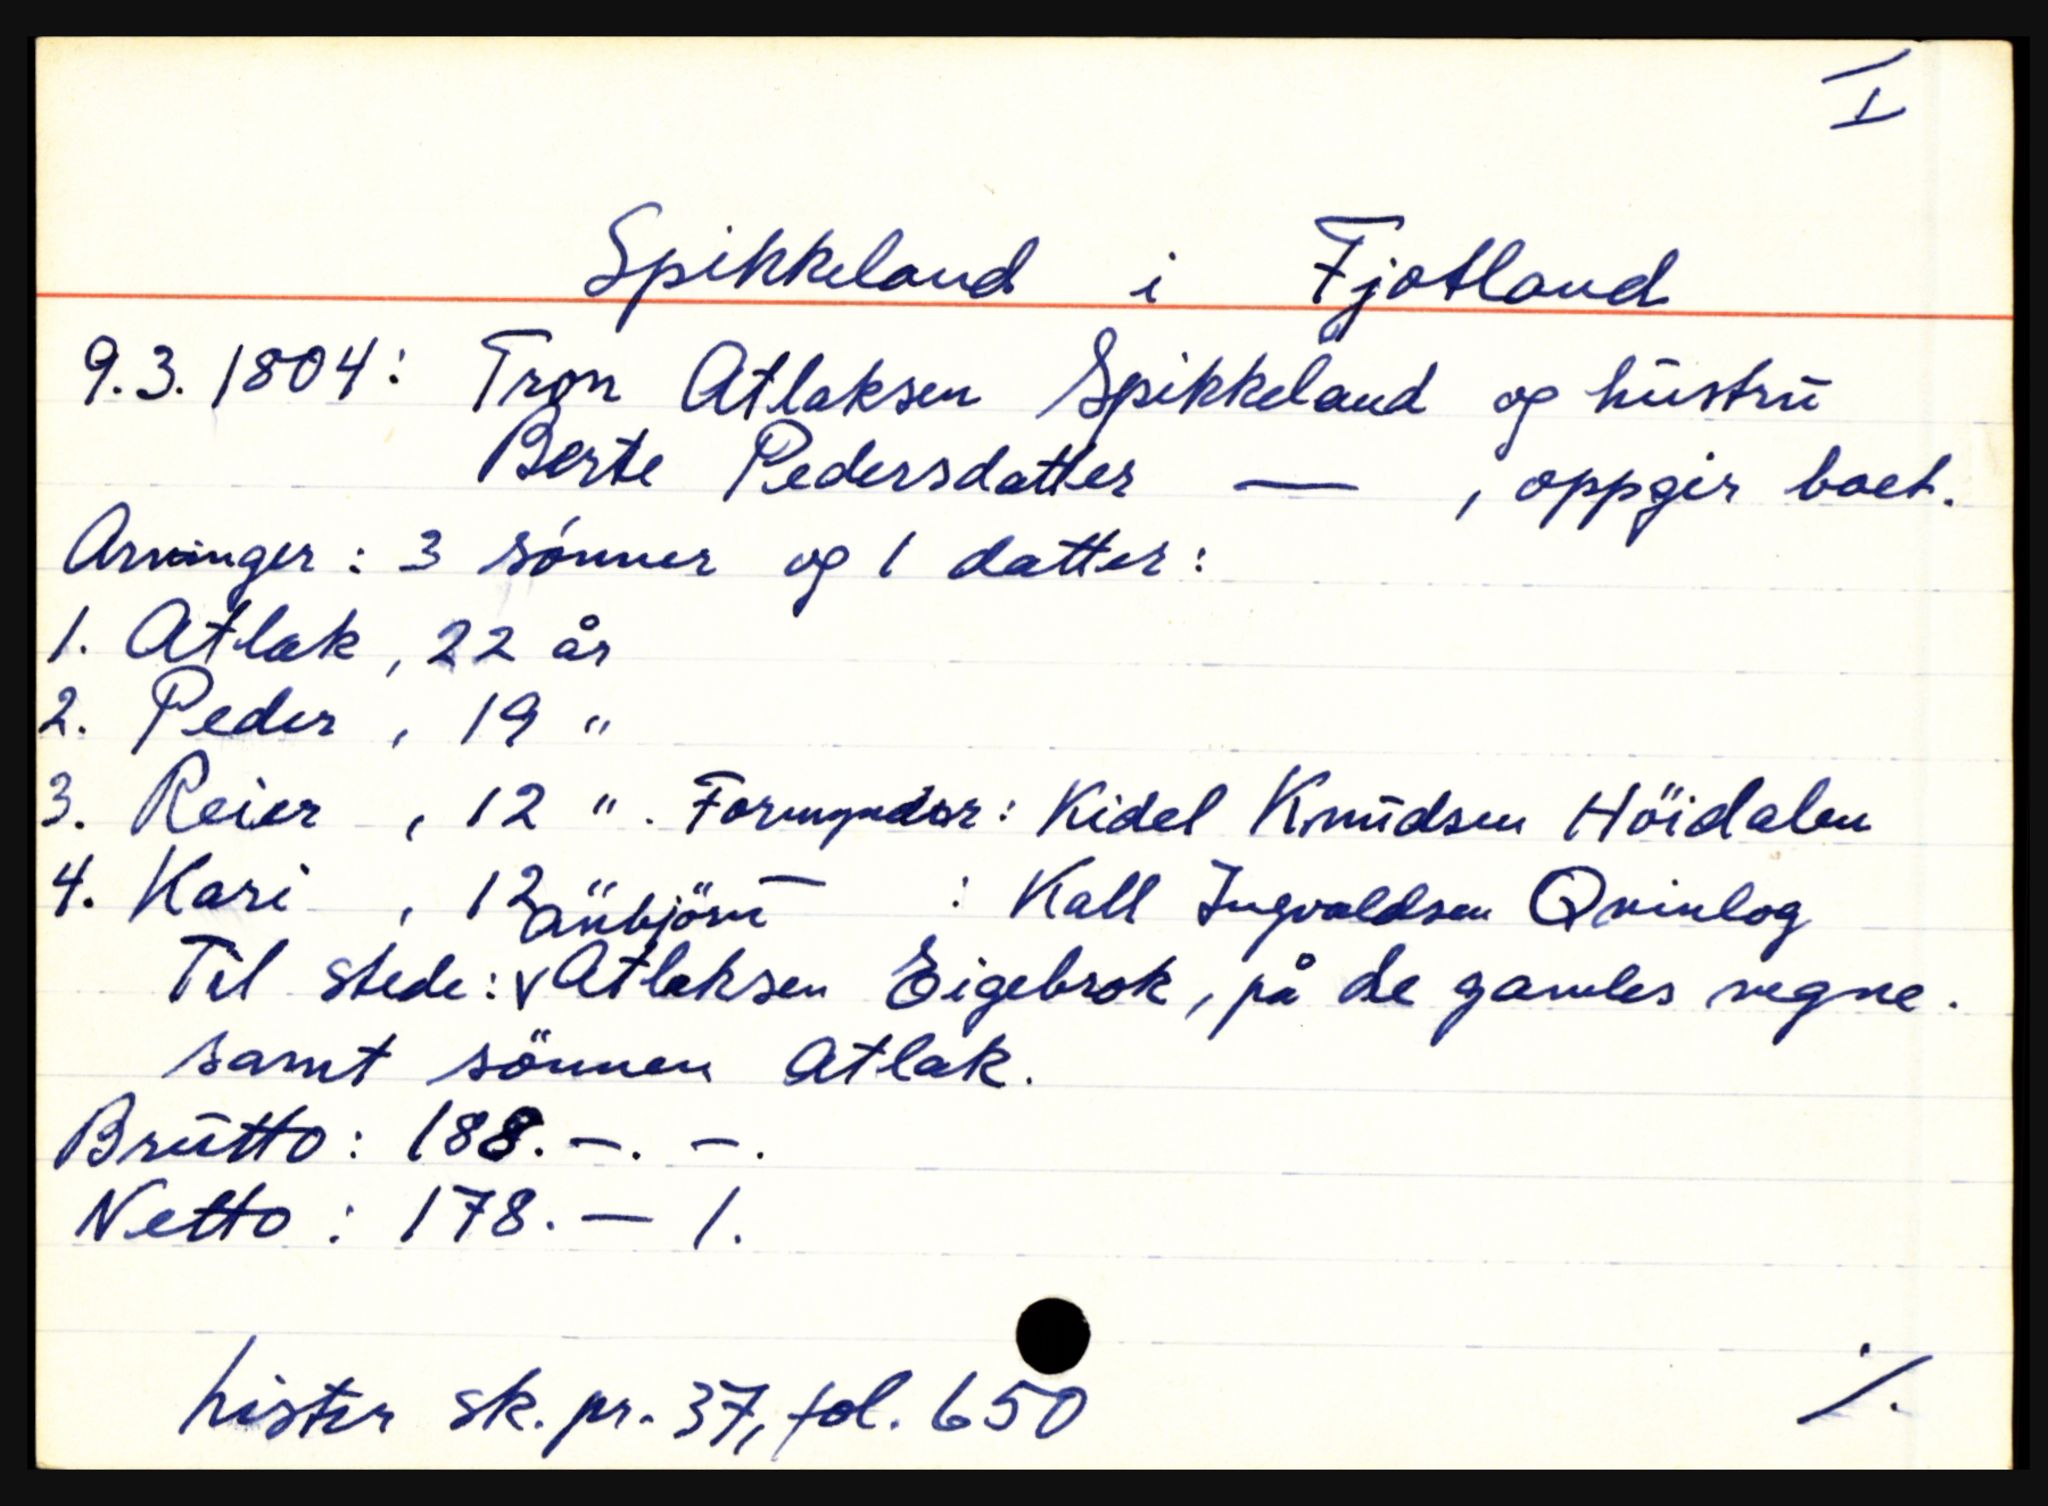 I
Spikkeland i Fjotland
9.3.1804: Tron Atlaksen Spikkeland og hustru
Berte Pedersdatter — , oppgir boet.
Arvinger: 3 sønner og 1 datter:
1. Atlak, 22 år
2. Peder, 19 "
3. Reier, 12 ". Formynder: Kidel Knudsen Höidalen
4. Kari, 12 " — : Kall Ingvaldsen Qvinlog
Til stede: v Atlaksen Eigebrok, på de gamles vegne.
samt sönnen Atlak.
Brutto: 188.-.-.
Netto: 178.- 1.
Lister sk. pr. 37, fol. 650
./.